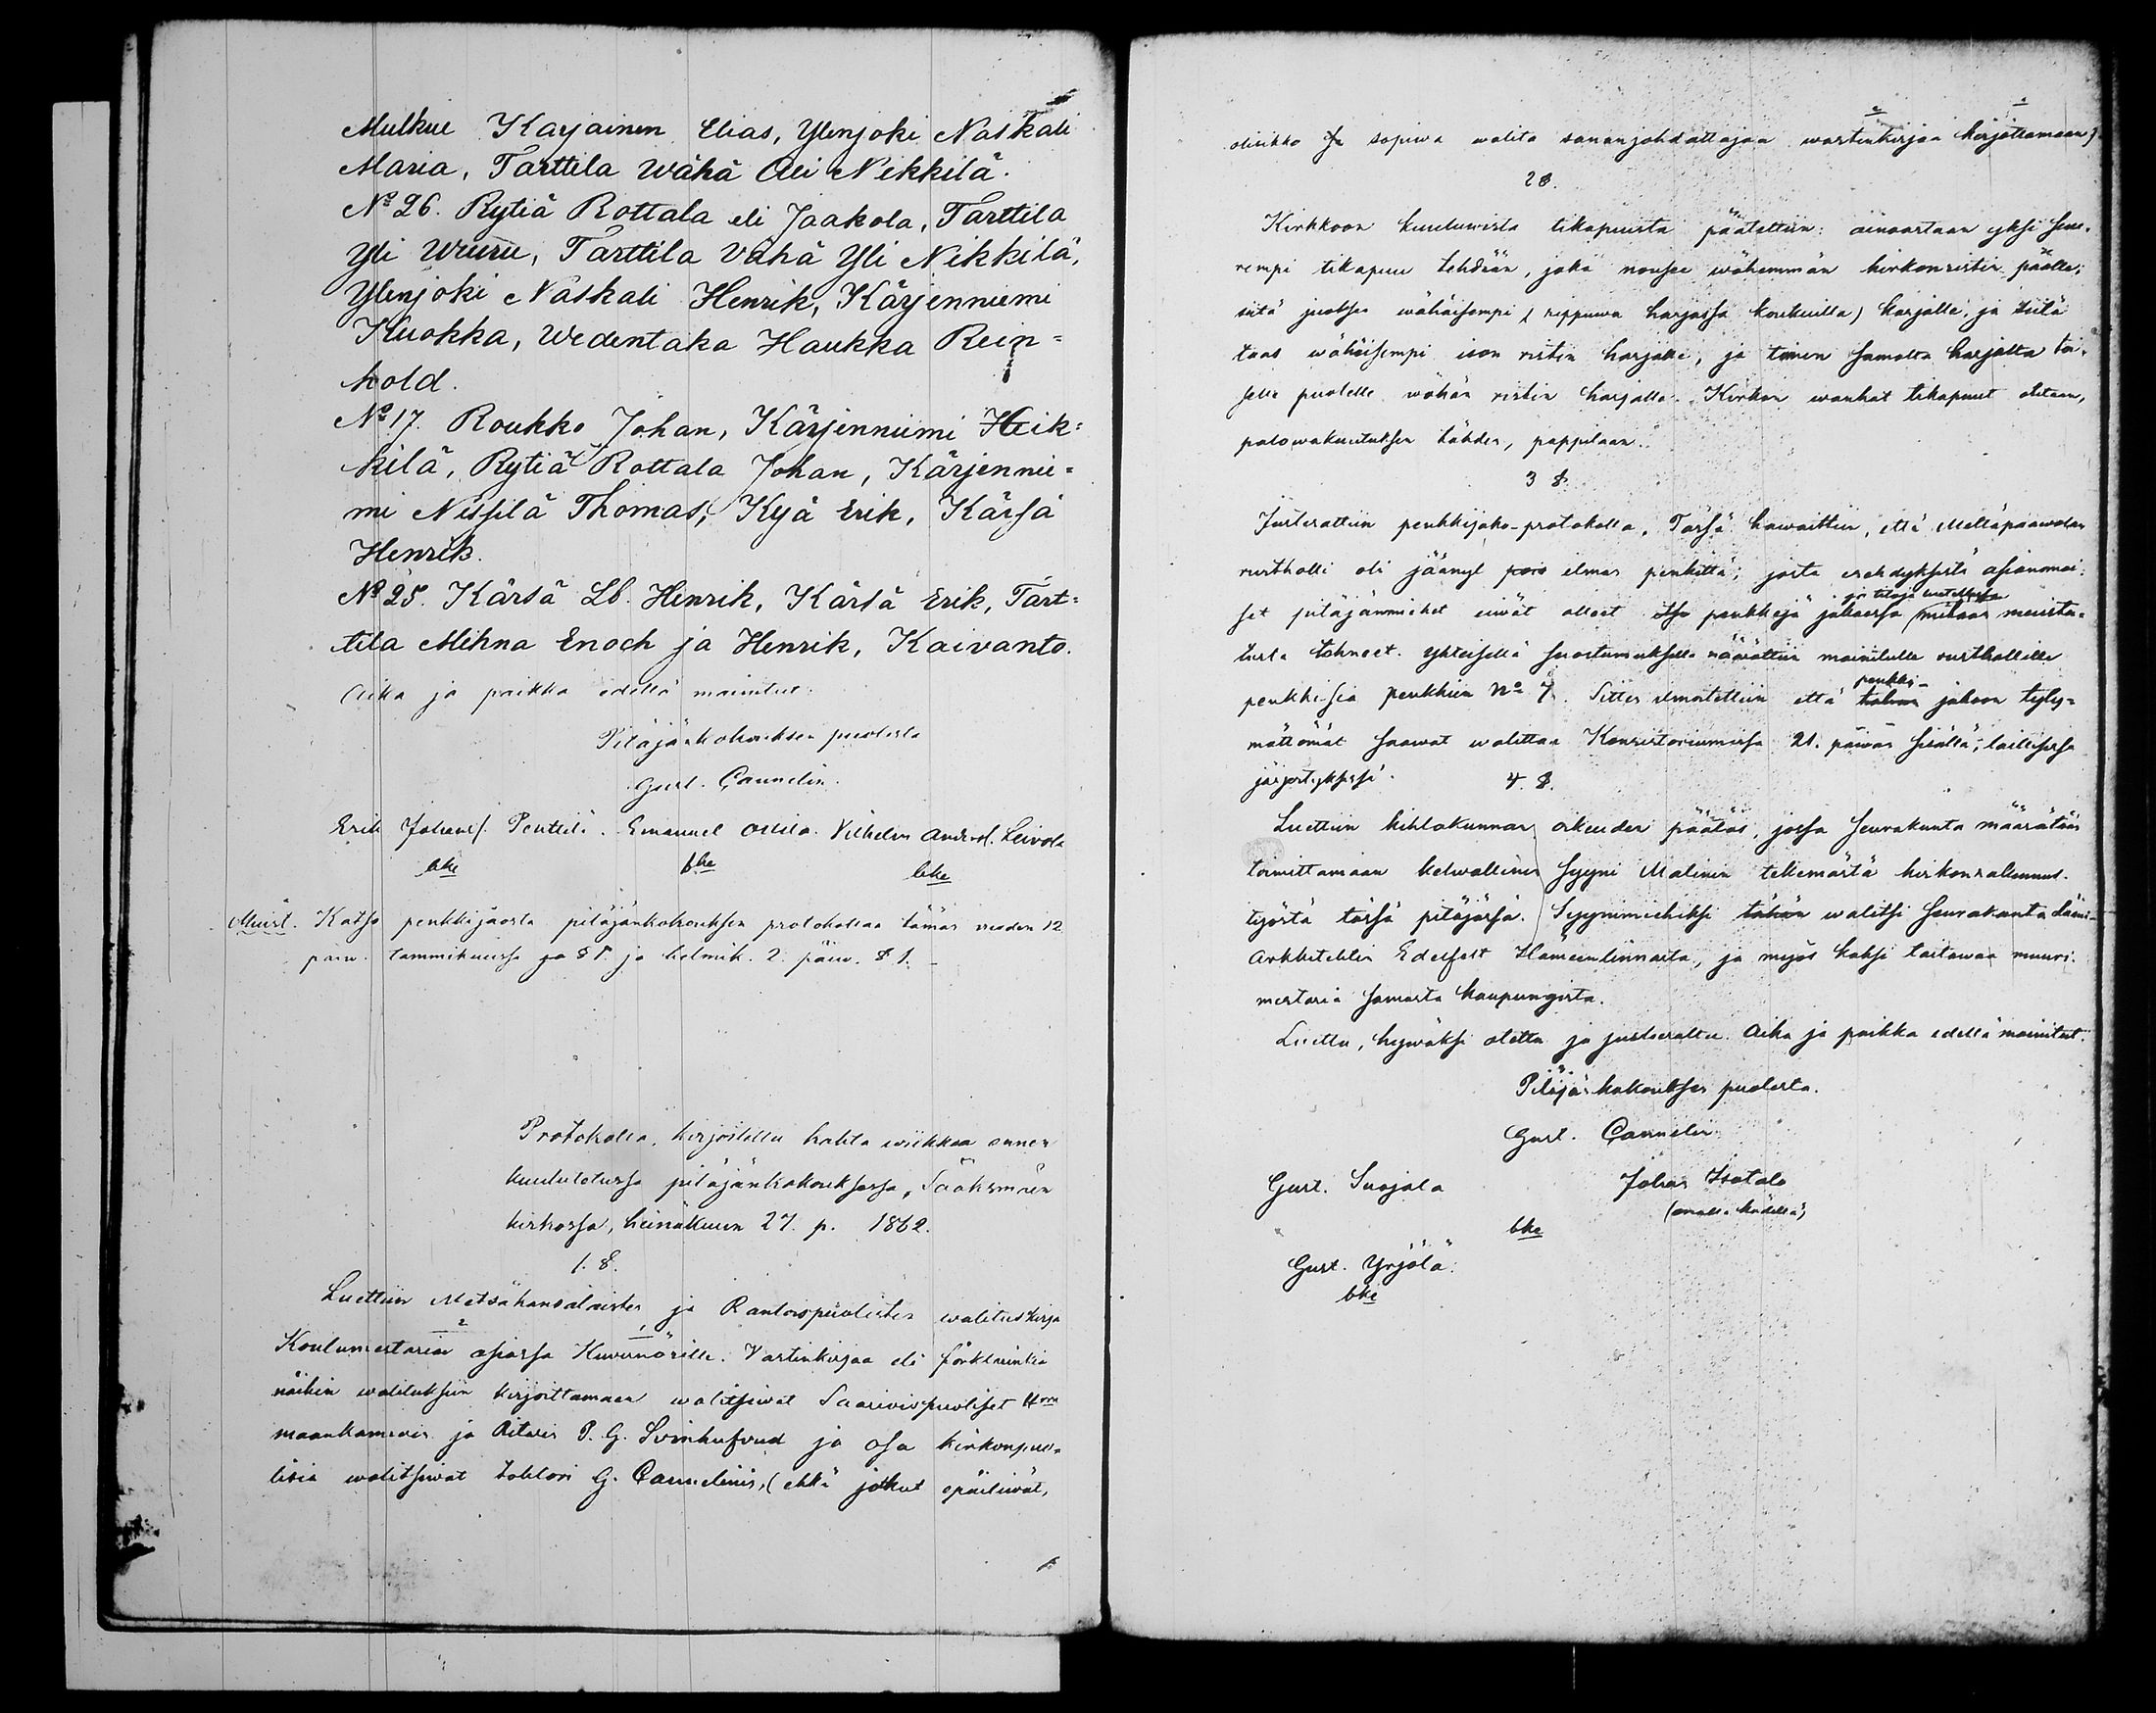 Mulkue Karjainen Elias, Ylenjoki Naskali
Maria, Tarttila Wähä Ali Nikkilä.
No 26. Rytiä Rottala eli Jaakola, Tarttila
Yli Wuuru, Tarttila Vähä Yli Nikkilä,
Ylenjoki Naskali Henrik, Kärjenniemi
Kuokka, Wedentaka Haukka Rein=
hold.
No 17. Roukko Johan, Kärjenniemi Heik=
kilä, Rytiä Rottala Johan, Kärjennie=
mi Nissilä Thomas, Kyä Erik, Kärsä
Henrik.
No 25. Kärsä Lb. Henrik, Kärsä Erik, Tart=
tila Mihna Enoch ja Henrik, Kaivanto.
Aika ja paikka edellä mainitut.
Pitäjänkokouksen puolesta
Gust. Cannelin.
Erik Johans. Penttilä. Emanuel Ollila. Vilhelm Anders. Leivola
bke bke bke
Muist. Katso penkkijaosta pitäjänkokouksen protokollaa tämän vuoden 12
päiw. tammikuussa § 5 ja helmik. 2. päiw. § 1.
Protokolla, kirjoitettu kahta wiikkoa ennen
kuulutetussa pitäjänkokouksessa, Sääksmäen
kirkossa, heinäkuun 27. p. 1862.
1. §.
Luettiin Metsäkansalaisten ja Rantoispuolisten walituskirja
Koulumestarin asiassa Kuvernörille. Vastinkirjaa eli förklarinkia
näihin walituksiin kirjoittamaan walitsiwat Saarioispuoliset Hrra
maankamreri ja Ritari P. G. Svinhufvud ja osa kirkonpuo=
lisia walitsiwat tohtori G. Cannelinin, (ehkä jotkut epäiliwät,
olisikko sopiwa walita sananjohdattajaa wastinkirjaa kirjottamaan).
2 §.
Kirkkoon kuuluwista tikapuista päätettiin: ainoastaan yksi suu=
rempi tikapuu tehdään, joka nousee wähemmän kirkonristin päälle;
siitä juoksee wähäisempi (rippuwa harjassa koukuilla) harjalle, ja siitä
taas wähäisempi ison ristin harjalle, ja toinen samalta harjalta toi=
selle puolelle wähän ristin harjalla. Kirkon wanhat tikapuut otetaan,
palowakuutuksen tähden, pappilaan.
3 §
Justerattiin penkkijako-protokolla. Tässä hawaittiin, että Mellapaawolan
rustholli oli jäänyt pois ilman penkittä; josta erehdyksestä asianomai=
set pitäjänmiehet eiwät olleet penkkejä jakaessa ja tiloja luetellessa mitään muistu=
tusta tehneet. Yhteisellä suostumuksella määrättiin mainitulle rusthollille
penkkisia penkkiin No 7. Sitten ilmotettiin että penkki-
jakoon tyty=
mättömät saawat walittaa Konsistoriumissa 21. päiwän sisällä, laillisessa
järjestyksessä.
4. §.
Luettiin kihlakunnan oikeuden päätös, jossa seurakunta määrätään
toimittamaan kelwollinen syyni Malinin tekemästä kirkonrakennus=
työstä tässä pitäjässä. Syynimiehiksi tähän walitsi seurakunta Lääni-
Arkkitehtin Edelfelt Hämeenlinnasta, ja myös kaksi taitawaa muuri=
mestaria samasta kaupungista.
Luettu, hywäksi otettu ja justerattu. Aika ja paikka edellä mainitut.
Pitäjänkokouksen puolesta.
Gust. Cannelin.
Gust. Suojala Johan Isotalo
(omalla kädellä)
bke
Gust. Yrjölä.
bke